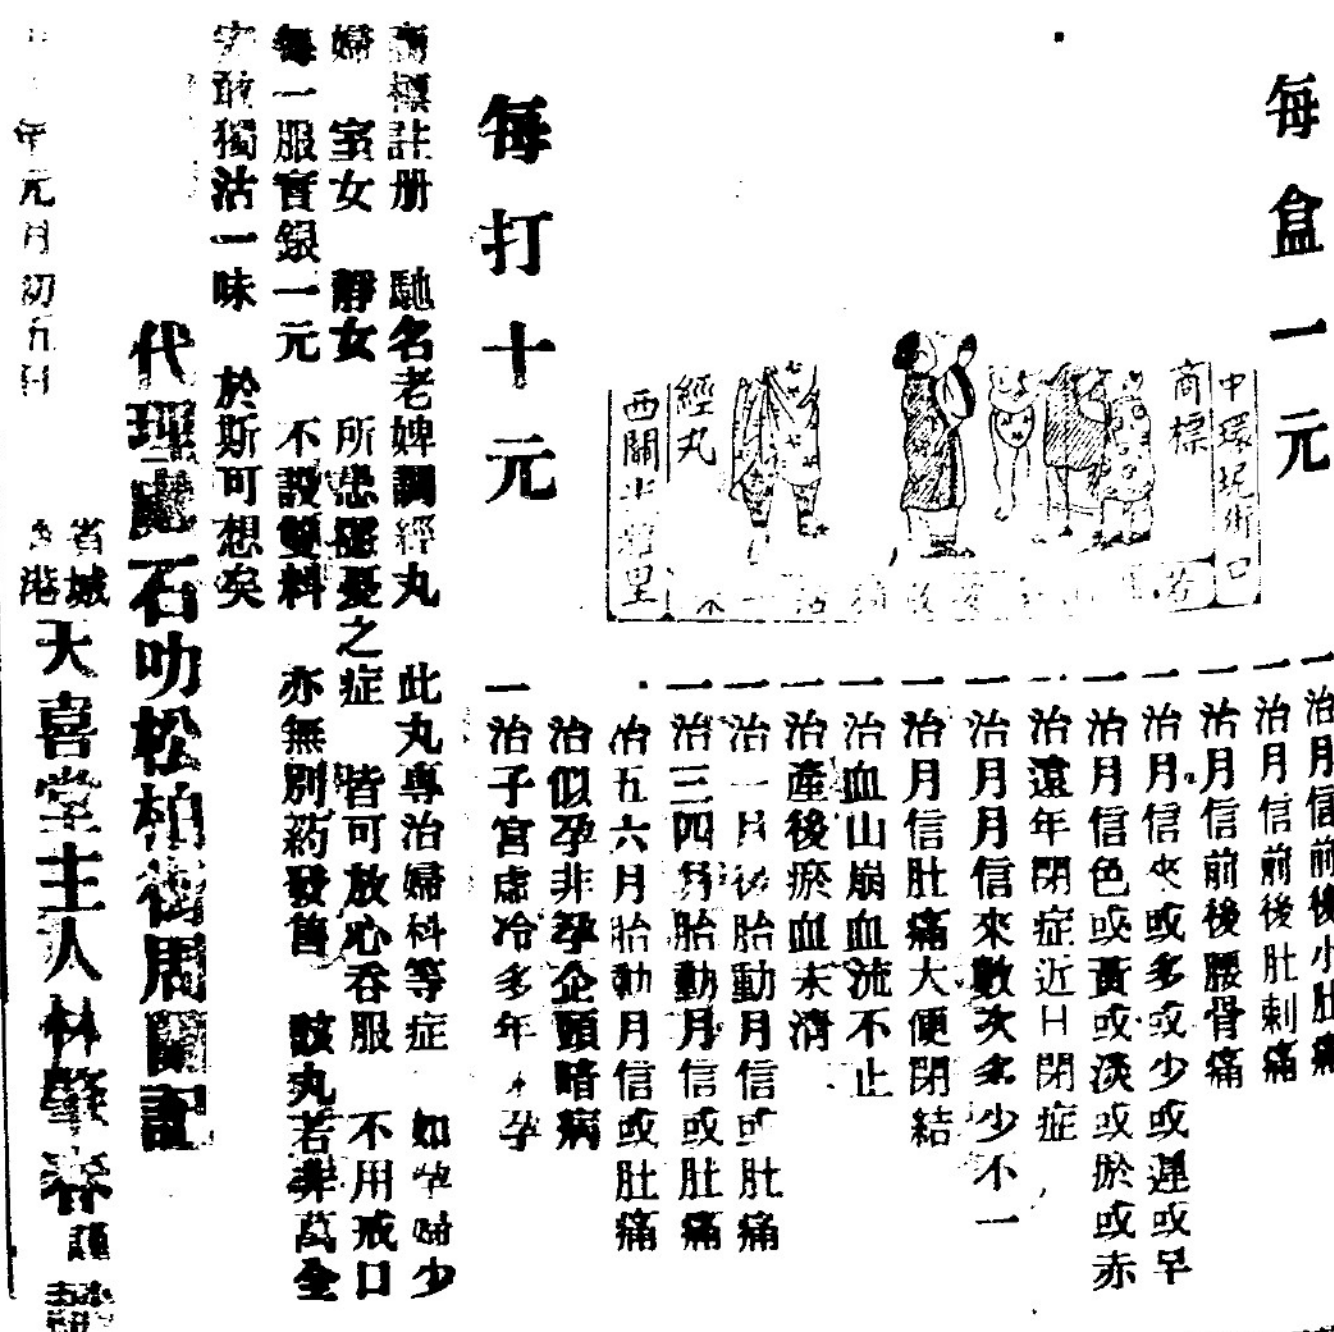 每盒一元
中環坭街口
商標
經丸
西關半塘里
一治月信前後小肚痛
一治月信前後肚刺痛
一治月信前後腰骨痛
一治月信或多或少或遲或早
一治月信色或黃或淡或瘀或赤
一治遠年閉症近日閉症
一治月月信來數次多少不一
一治月信肚痛大便閉結
一治血山崩血流不止
一治產後瘀血未淸
一治一月後胎動月信或肚痛
一治三四月胎動月信或肚痛
治五六月胎動月信或肚痛
治似孕非孕企頭暗病
一治子宮虛冷多年孕
每打十元
商標註册 馳名老婢調經丸 此丸專治婦科等症 如孕婦少
婦 室女 靜女 所患隱憂之症 皆可放心吞服 不用戒口
每一服實銀一元 不設雙料 亦無別葯發售 該丸若非萬全
安敢獨沽一味 於斯可想矣
代理處石叻松柏街周蘭記
省城
香港
大喜堂主人林肇春謹
年元月初五日